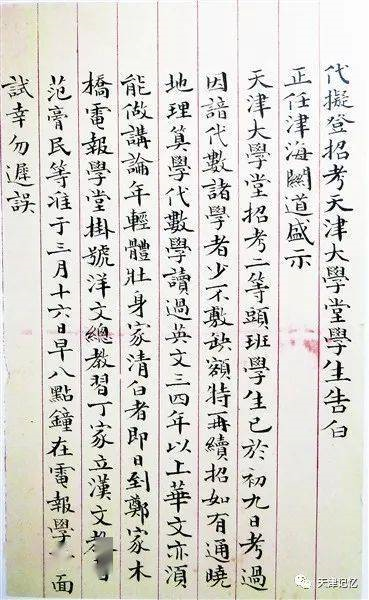 代擬登招考天津大學堂學生告白
正任津海關道盛示
天津大學堂招考二等頭班學生已於初九日考過
因諳代數諸學者少不敷缺額特再續招如有通曉
地理算學代數學讀過英文三四年以上華文亦須
能做講論年輕體壯身家清白者即日到鄭家木
橋電報學堂掛號洋文總教習丁家立漢文教
范膏民等准于三月十六日早八點鐘在電報學面
試幸勿遲誤
天津记忆